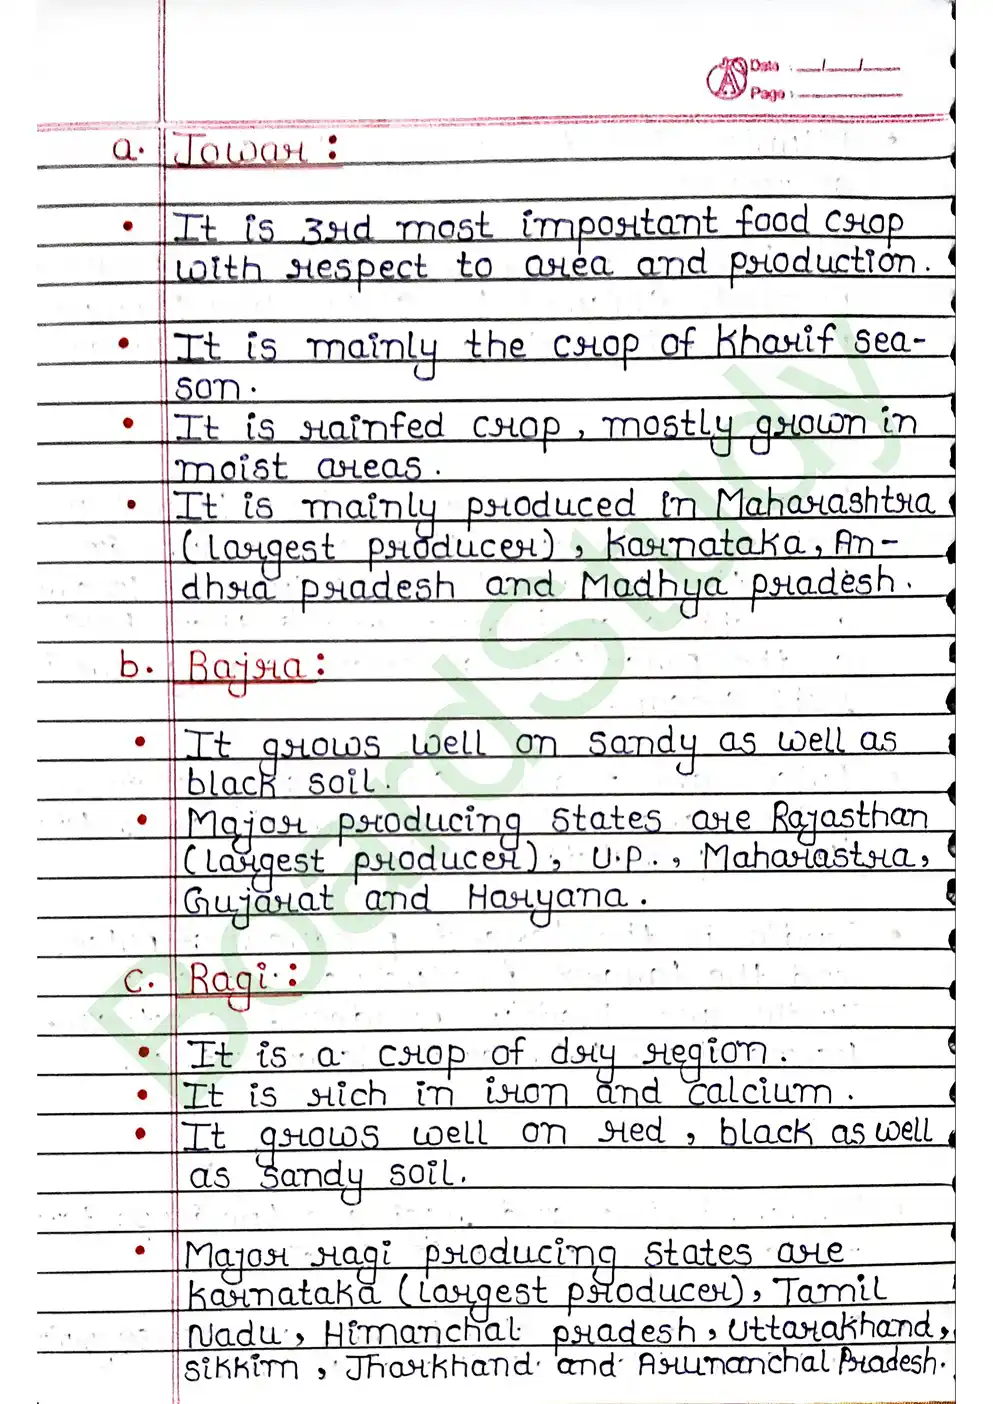 Date : __/__/__
Page :
a. Jowar :
• It is 3rd most important food crop
with respect to area and production.
• It is mainly the crop of Kharif sea-
son.
• It is rainfed crop, mostly grown in
moist areas.
• It is mainly produced in Maharashtra
(largest producer), Karnataka, An-
dhra pradesh and Madhya pradesh.
b. Bajra :
• It grows well on sandy as well as
black soil.
• Major producing states are Rajasthan
(largest producer), U.P., Maharastra,
Gujarat and Haryana.
c. Ragi :
• It is a crop of dry region.
• It is rich in iron and calcium.
• It grows well on red, black as well
as sandy soil.
• Major ragi producing states are
Karnataka (largest producer), Tamil
Nadu, Himanchal pradesh, Uttarakhand,
sikkim, Jharkhand and Arunanchal Pradesh.
BoardStudy